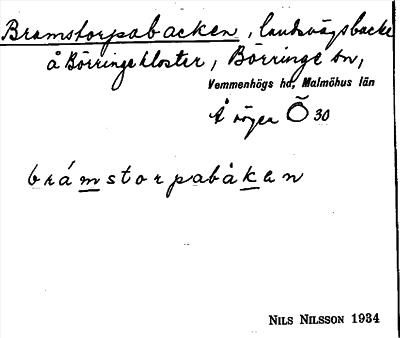 Bramstorpabacken, landsvägsbacke
å Börringekloster, Börringe sn,
Vemmenhögs hd, Malmöhus län
Å vägen Ö 30
brámstorpabåkan
NILS NILSSON 1934